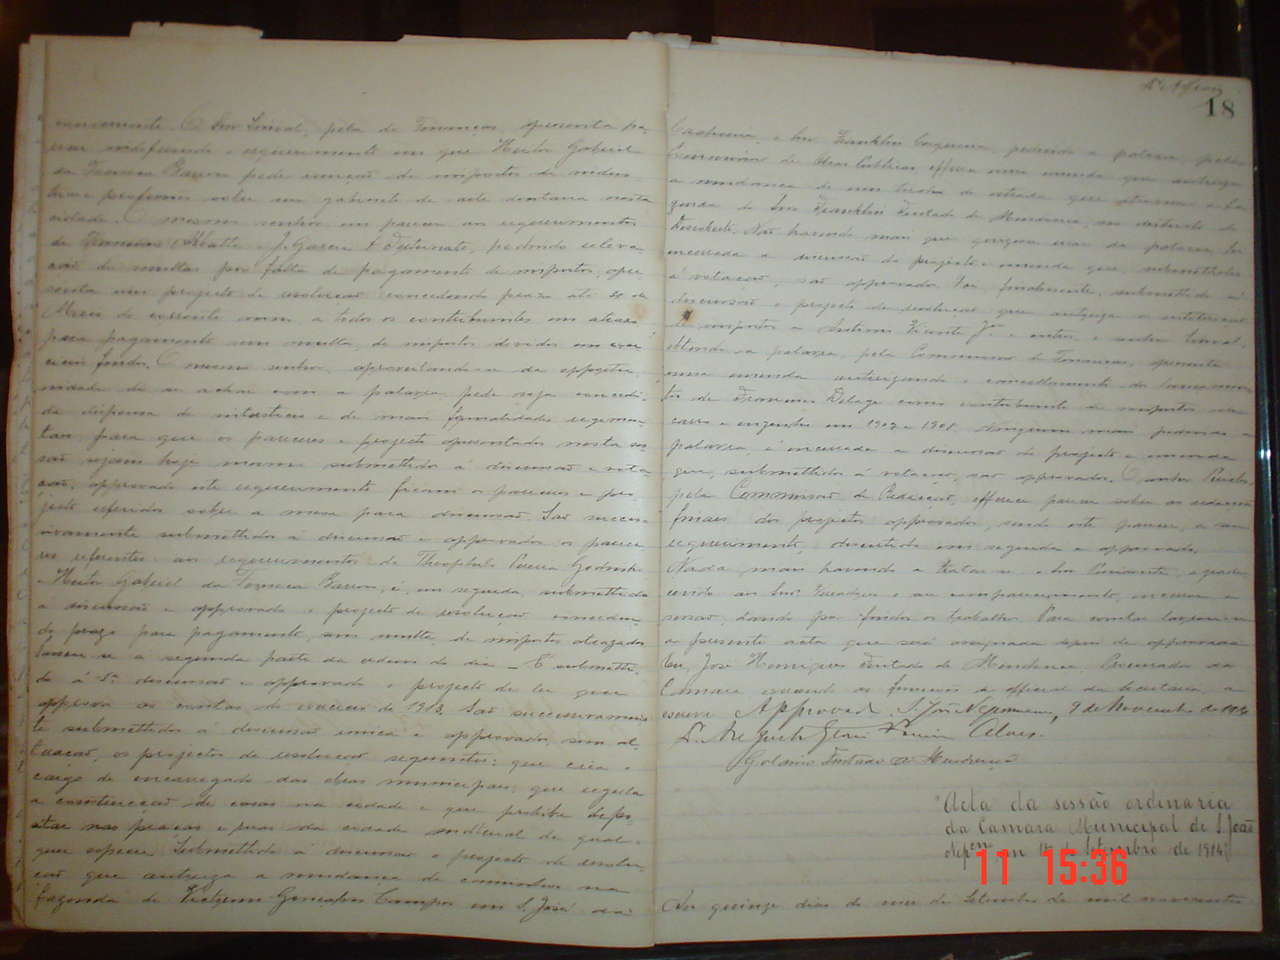 novamente. O Snr Sinval, pela de Finanças, apresenta pa-
recer indeferindo o requerimento em que Heitor Gabriel
da Fonseca Barros pede isenção de impostos de indus-
trias e profissões sobre seu gabinete de arte dentaria nesta
cidade. O mesmo senhor, em parecer aos requerimentos
de Francisco Miatte e J. Garcia &, pedindo releva-
ção de multas por falta de pagamento de impostos, apre
senta um projecto de resolução concedendo prazo até 30 de
do corrente anno a todos os contribuintes em atrazo
para pagamento sem multa, de impostos devidos em exer-
cicios findos. O mesmo senhor, aproveitando-se da opportu-
nidade de se achar com a palavra, pede seja concedi-
da dispensa de intersticio e de mais formalidades regimen
taes, para que os pareceres e projecto apresentados nesta ses
são sejam hoje mesmo submettidos á discussão e vota
ção; approvado este requerimento ficam os pareceres e pro
jecto referidos sobre a mesa para discussão. São succes-
sivamente submettidos á discussão e approvados os parece
res referentes aos requerimentos de Theophilo Pereira
e Heitor Gabriel da Fonseca Barros; é, em seguida, submettido
á discussão e approvado o projecto de resolução conceden-
do prazo para pagamento, sem multa, de impostos atrazados.
Passou-se á segunda parte da ordem do dia - É submetti-
do á 2ª discussão e approvado o projecto de lei que
approva as contas do exercicio de 1913. São successivamen-
te submettidos á discussão unica e approvados, sem al-
teração, os projectos de resolução seguintes: que crêa o
cargo de encarregado das obras municipaes; que regula
a construcção de casas na cidade e que prohibe depo-
sitar nas praças e ruas da cidade material de qual-
quer especie. Submettido á discussão o projecto de resolu-
ção que autoriza a mudança de caminhos na
fazenda de Gonçalves Campos em S. José da
18
o Snr Franklin Cerqueira, pedindo a palavra, pela
Commissão de Obras Publicas, offerece uma emenda que autoriza
a mudança de um trecho de estrada que atravessa a fa
zenda do Snr Franklin Furtado de Mendonça, no districto de
Não havendo mais quem queira usar da palavra, foi
encerrada a discussão do projecto e emenda que, submettidos
á votação, são approvados. Foi, finalmente, submettido á
discussão o projecto de resolução que autoriza a restituição
de impostos a Antonio Vicente Jor. e outros; o senhor Sinval,
obtendo a palavra, pela Commissão de Finanças, apresenta
uma emenda autorizando o cancellamento do lançamen-
to de Francisco Delage como contribuinte de impostos sobre
carros e engenho em 1907 e 1908. Ninguem mais pedindo a
palavra, é encerrada a discussão do projecto e emenda
que, submettidos á votação, são approvados. O senhor
pela Commissão de Redacção, offerece parecer sobre as redacções
finaes dos projectos approvados, sendo este parecer, a seu
requerimento, discutido em seguida e approvado.
Nada mais havendo a tratar-se o Snr Presidente, agrade-
cendo aos Snrs Vereadores o seu comparecimento, encerra a
sessão, dando por findos os trabalhos. Para constar lavrou-se
a presente acta que será assignada depois de approvada.
Eu, José Henriques Furtado de Mendonça, Procurador da
Camara, exercendo as funcções de official da Secretaria, a
escrevi. Approvada. S. João Nepomuceno, 9 de Novembro de 1914
Galdino Furtado de Mendonça
Acta da sessão ordinaria
da Camara Municipal de S. João
Nepcno em 15 de Setembro de 1914
Aos quinze dias do mez de Setembro de mil novecentos
11 15:36